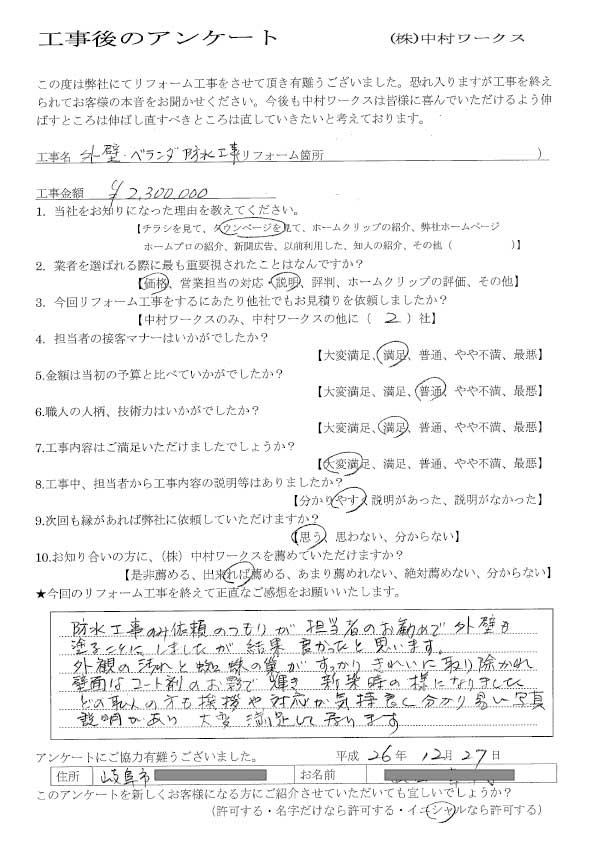 工事後のアンケート　(株)中村ワークス
この度は弊社にてリフォーム工事をさせて頂き有難うございました。恐れ入りますが工事を終え
られてお客様の本音をお聞かせください。今後も中村ワークスは皆様に喜んでいただけるよう伸
ばすところは伸ばし直すべきところは直していきたいと考えております。
工事名 外壁・ベランダ防水工事 リフォーム箇所　）
工事金額 ¥2,300,000
1. 当社をお知りになった理由を教えてください。
【チラシを見て、タウンページを見て、ホームクリップの紹介、弊社ホームページ
ホームプロの紹介、新聞広告、以前利用した、知人の紹介、その他（　）】
2. 業者を選ばれる際に最も重要視されたことはなんですか？
【価格、営業担当の対応・説明、評判、ホームクリップの評価、その他】
3. 今回リフォーム工事をするにあたり他社でもお見積りを依頼しましたか？
【中村ワークスのみ、中村ワークスの他に（ 2 ）社】
4. 担当者の接客マナーはいかがでしたか？
【大変満足、満足、普通、やや不満、最悪】
5.金額は当初の予算と比べていかがでしたか？
【大変満足、満足、普通、やや不満、最悪】
6.職人の人柄、技術力はいかがでしたか？
【大変満足、満足、普通、やや不満、最悪】
7.工事内容はご満足いただけましたでしょうか？
【大変満足、満足、普通、やや不満、最悪】
8.工事中、担当者から工事内容の説明等はありましたか？
【分かりやすく説明があった、説明がなかった】
9.次回も縁があれば弊社に依頼していただけますか？
【思う、思わない、分からない】
10.お知り合いの方に、（株）中村ワークスを薦めていただけますか？
【是非薦める、出来れば薦める、あまり薦めれない、絶対薦めない、分からない】
★今回のリフォーム工事を終えて正直なご感想をお願いいたします。
防水工事のみ依頼のつもりが担当者のお勧めで外壁も
塗ることにしましたが結果良かったと思います。
外観の汚れと蜘蛛の巣がすっかりきれいに取り除かれ
壁面はコート剤のお影で輝き新築時の様になりました
どの職人の方も挨拶や対応が気持良く分かり易い写真
説明があり大変満足して居ります
アンケートにご協力有難うございました。　平成 26年 12月 27日
住所　岐阜市　お名前
このアンケートを新しくお客様になる方にご紹介させていただいても宜しいでしょうか？
（許可する・名字だけなら許可する・イニシャルなら許可する）